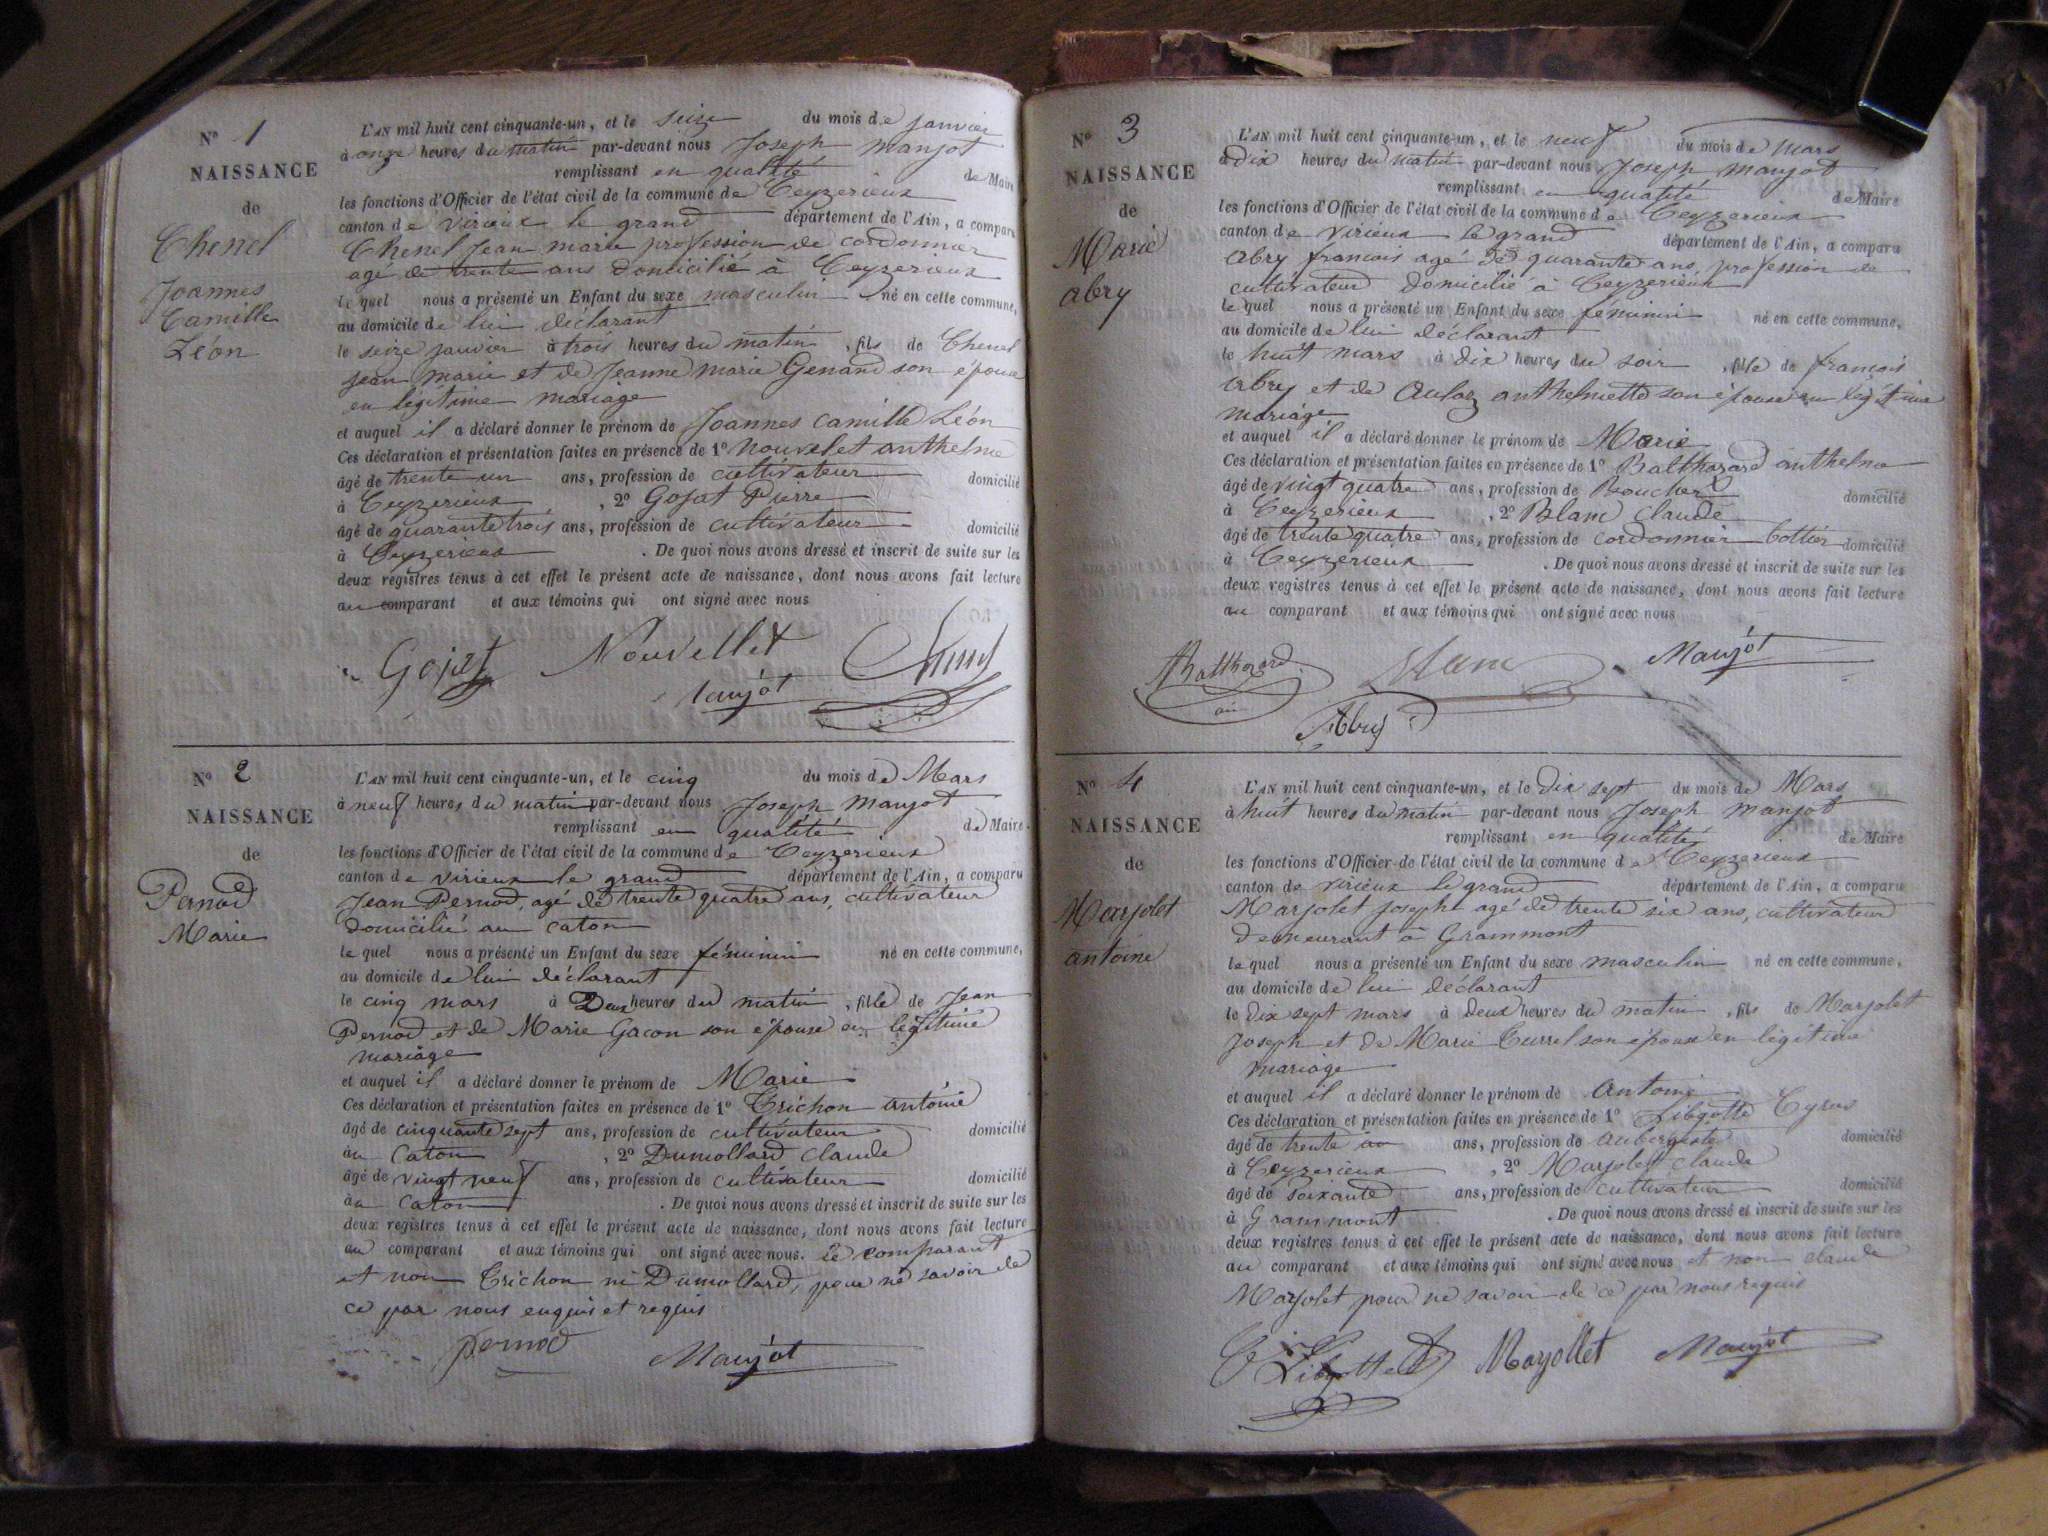 N° 1
NAISSANCE
de
Chenel
Joannes
Camille
Léon
L'AN mil huit cent cinquante-un, et le seize du mois de janvier
à onze heures du matin par-devant nous Joseph Maujot
remplissant en qualité de Maire
les fonctions d'Officier de l'état civil de la commune de Ceyzerieux
canton de virieux le grand département de l'Ain, a comparu
Chenel Jean marie profession de cordonnier
agé de trente ans domicilié à Ceyzerieux
lequel nous a présenté un Enfant du sexe masculin né en cette commune,
au domicile de lui déclarant
le seize janvier à trois heures du matin, fils de Chenel
jean marie et de Jeanne marie Genand son épouse
en légitime mariage
et auquel il a déclaré donner le prénom de Joannes Camille Léon
Ces déclaration et présentation faites en présence de 1° Nouvelet anthelme
âgé de trente un ans, profession de cultivateur domicilié
à Ceyzerieux, 2° Gojat Pierre
âgé de quarante trois ans, profession de cultivateur domicilié
à Ceyzerieux. De quoi nous avons dressé et inscrit de suite sur les
deux registres tenus à cet effet le présent acte de naissance, dont nous avons fait lecture
au comparant et aux témoins qui ont signé avec nous
Gojat Nouvellet
Maujot
N° 2
NAISSANCE
de
Pernod
Marie
L'AN mil huit cent cinquante-un, et le cinq du mois de Mars
à neuf heures du matin par-devant nous Joseph Maujot
remplissant en qualité de Maire
les fonctions d'Officier de l'état civil de la commune de Ceyzerieux
canton de virieux le grand département de l'Ain, a comparu
Jean Pernod, agé de trente quatre ans, cultivateur
domicilié au caton
lequel nous a présenté un Enfant du sexe féminin né en cette commune,
au domicile de lui déclarant
le cinq mars à Deux heures du matin, fille de Jean
Pernod et de Marie Gacon son épouse en légitime
mariage
et auquel il a déclaré donner le prénom de Marie
Ces déclaration et présentation faites en présence de 1° Trichon antoine
âgé de cinquante sept ans, profession de cultivateur domicilié
au Caton, 2° Dumollard claude
âgé de vingt neuf ans, profession de cultivateur domicilié
au caton. De quoi nous avons dressé et inscrit de suite sur les
deux registres tenus à cet effet le présent acte de naissance, dont nous avons fait lecture
au comparant et aux témoins qui ont signé avec nous. le comparant
et non Trichon ni Dumollard, pour ne savoir de
ce par nous enquis et requis
pernod Maujot
N° 3
NAISSANCE
de
Marie
abry
L'AN mil huit cent cinquante-un, et le neuf du mois de mars
à dix heures du matin par-devant nous Joseph maujot
remplissant en qualité de Maire
les fonctions d'Officier de l'état civil de la commune de Ceyzerieux
canton de virieux le grand département de l'Ain, a comparu
abry francois agé de quarante ans, profession de
cultivateur domicilié à Ceyzerieux
lequel nous a présenté un Enfant du sexe féminin né en cette commune,
au domicile de lui déclarant
le huit mars à dix heures du soir, fille de francois
abry et de anthelmette son épouse en légitime
mariage
et auquel il a déclaré donner le prénom de Marie
Ces déclaration et présentation faites en présence de 1° Balthazard anthelme
âgé de vingt quatre ans, profession de Boucher domicilié
à Ceyzerieux, 2° Blanc claude
âgé de trente quatre ans, profession de cordonnier bottier domicilié
à Ceyzerieux. De quoi nous avons dressé et inscrit de suite sur les
deux registres tenus à cet effet le présent acte de naissance, dont nous avons fait lecture
au comparant et aux témoins qui ont signé avec nous
Balthazard Blanc Maujot
Abry
N° 4
NAISSANCE
de
Marjolet
antoine
L'AN mil huit cent cinquante-un, et le dix sept du mois de Mars
à huit heures du matin par-devant nous Joseph maujot
remplissant en qualité de Maire
les fonctions d'Officier de l'état civil de la commune de Ceyzerieux
canton de virieux le grand département de l'Ain, a comparu
Marjolet Joseph agé de trente six ans, cultivateur
demeurant à Grammont
lequel nous a présenté un Enfant du sexe masculin né en cette commune,
au domicile de lui déclarant
le dix sept mars à deux heures du matin, fils de Marjolet
Joseph et de Marie Currel son épouse en légitime
mariage
et auquel il a déclaré donner le prénom de antoine
Ces déclaration et présentation faites en présence de 1° Libgotte Cyrus
âgé de trente ans, profession de aubergiste domicilié
à Ceyzerieux, 2° Marjolet claude
âgé de soixante ans, profession de cultivateur domicilié
à Grammont. De quoi nous avons dressé et inscrit de suite sur les
deux registres tenus à cet effet le présent acte de naissance, dont nous avons fait lecture
au comparant et aux témoins qui ont signé avec nous et non claude
Marjolet pour ne savoir de ce par nous requis
C Libgotte Marjollet Maujot